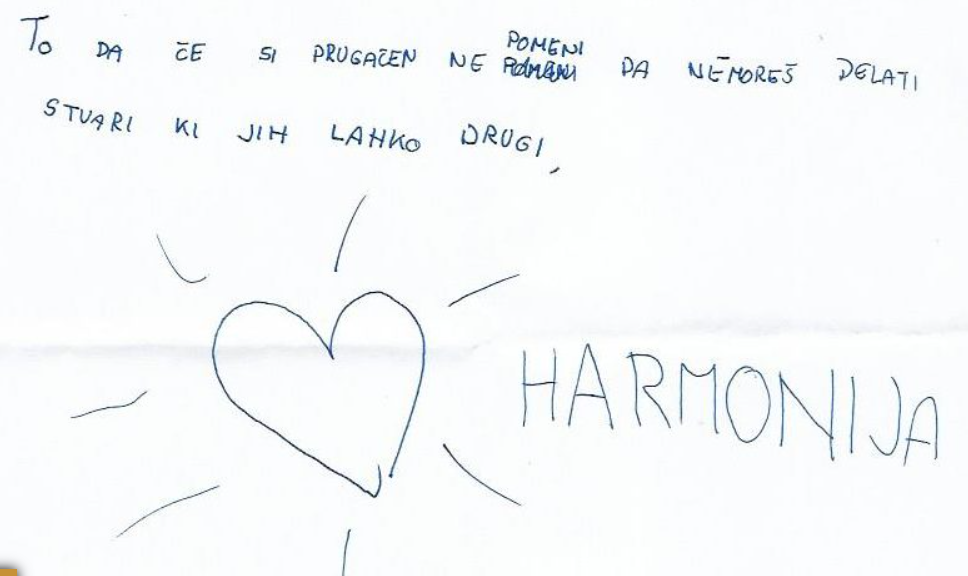 To DA ČE SI DRUGAČEN NE POMENI DA NEMOREŠ DELATI
STVARI KI JIH LAHKO DRUGI.
HARMONIJA